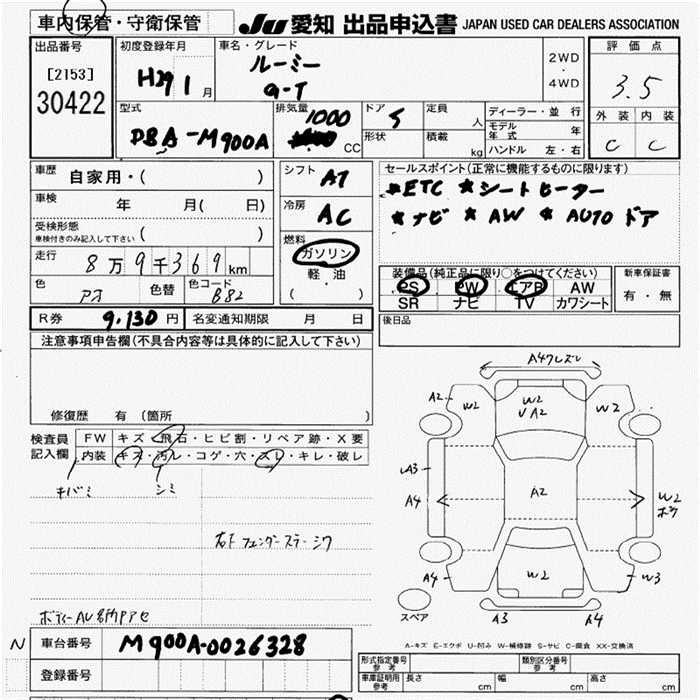 車内保管・守衛保管
JU 愛知 出品申込書 JAPAN USED CAR DEALERS ASSOCIATION
出品番号
[2153]
30422
初度登録年月
H29 1月
車名・グレード
ルーミー
G-T
2WD
・
4WD
評価点
3.5
外装 内装
C C
型式
DBA-M900A
排気量
1000
CC
ドア 5
形状
定員 人
積載 kg
ディーラー・並行
モデル年式 年
ハンドル 左・右
車歴
自家用・( )
車検 年 月( 日)
受検形態
車検付きのみ記入して下さい ( )
走行
8万9千369km
色 色替 色コード
アオ B82
シフト
AT
冷房
AC
燃料
ガソリン
軽・油
( )
セールスポイント(正常に機能するものに限ります)
★ETC ★シートヒーター
★ナビ ★AW ★AUTOドア
装備品(純正品に限り○をつけてください)
PS PW エアB AW
SR ナビ TV カワシート
新車保証書
有・無
R券 9,130円 名変通知期限 月 日
後日品
注意事項申告欄(不具合内容等は具体的に記入して下さい)
修復歴 有(箇所 )
検査員記入欄
FW キズ・飛石・ヒビ割・リペア跡・X要
内装 キズ・汚レ・コゲ・穴・スレ・キレ・破レ
キバミ シミ
右下フェンダーステーシワ
A4ワレズレ
A2 W2
W2
UA2
W2
A3
A4
A2
W2
ボウ
A4
W2
W3
スペア
A3 A4
A-キズ E-エクボ U-凹み W-補修跡 S-サビ C-腐食 XX-交換済
N
車台番号 M900A-0026328
登録番号
型式指定番号 参考
類別区分番号 参考
車庫証明用 参考 長さ cm 幅 cm 高さ cm